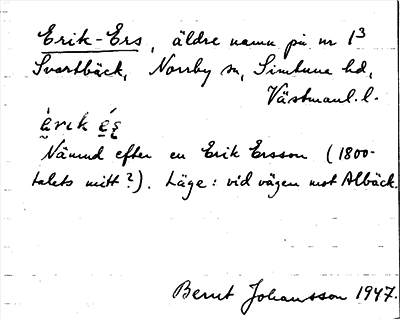 Erik-Ers, äldre namn på nr 1³
Svartbäck, Norrby sn, Simtuna hd,
Västmanl. l.
èrɩk é̱ʂ
Nämnd efter en Erik Ersson (1800-
talets mitt?). Läge: vid vägen mot Albäck.
Bernt Johansson 1947.